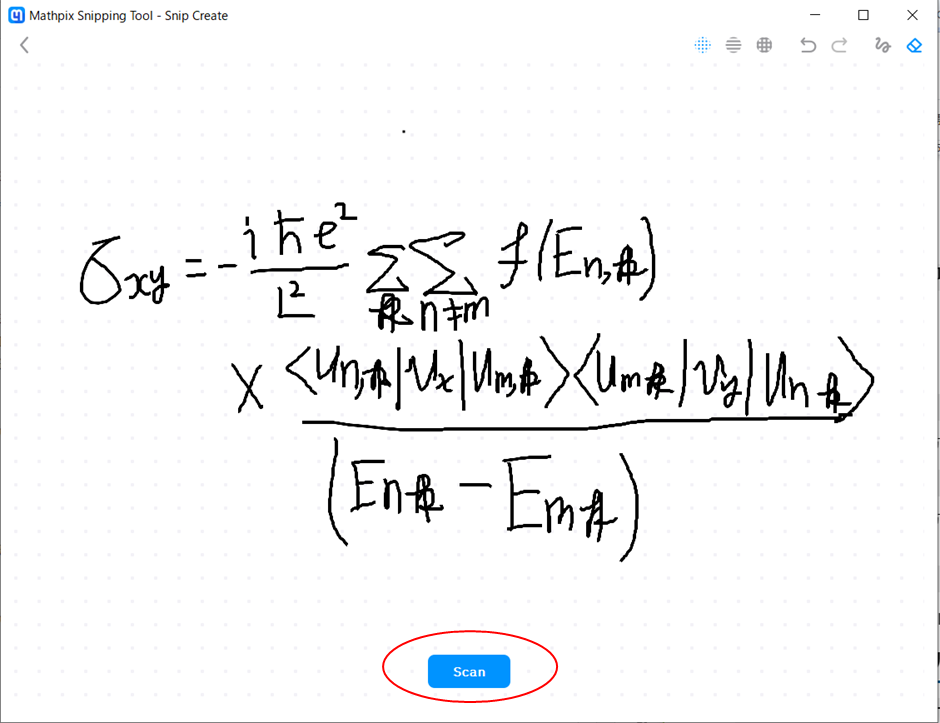 Mathpix Snipping Tool - Snip Create
σxy = - iħe² / L² Σk Σn≠m f(En,k)
× ⟨un,k|vx|um,k⟩⟨umk|vy|unk⟩
(Enk - Emk)
Scan